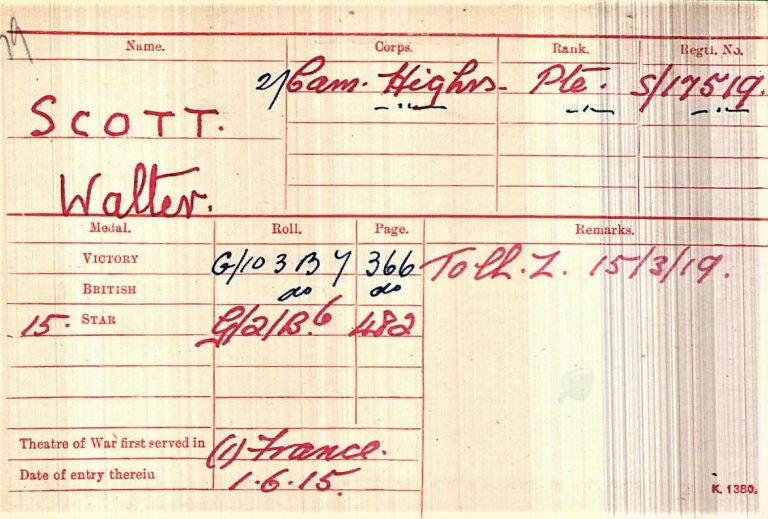 Name. Corps. Rank. Regtl. No.
2/ Cam. Highrs. Pte. S/17519.
SCOTT.
Walter.
Medal. Roll. Page. Remarks.
VICTORY G/103 B 7 366 To Cl. Z. 15/3/19.
BRITISH do do
15. STAR G/2/B.6 482
Theatre of War first served in (1) France.
Date of entry therein 1.6.15.
K. 1380.